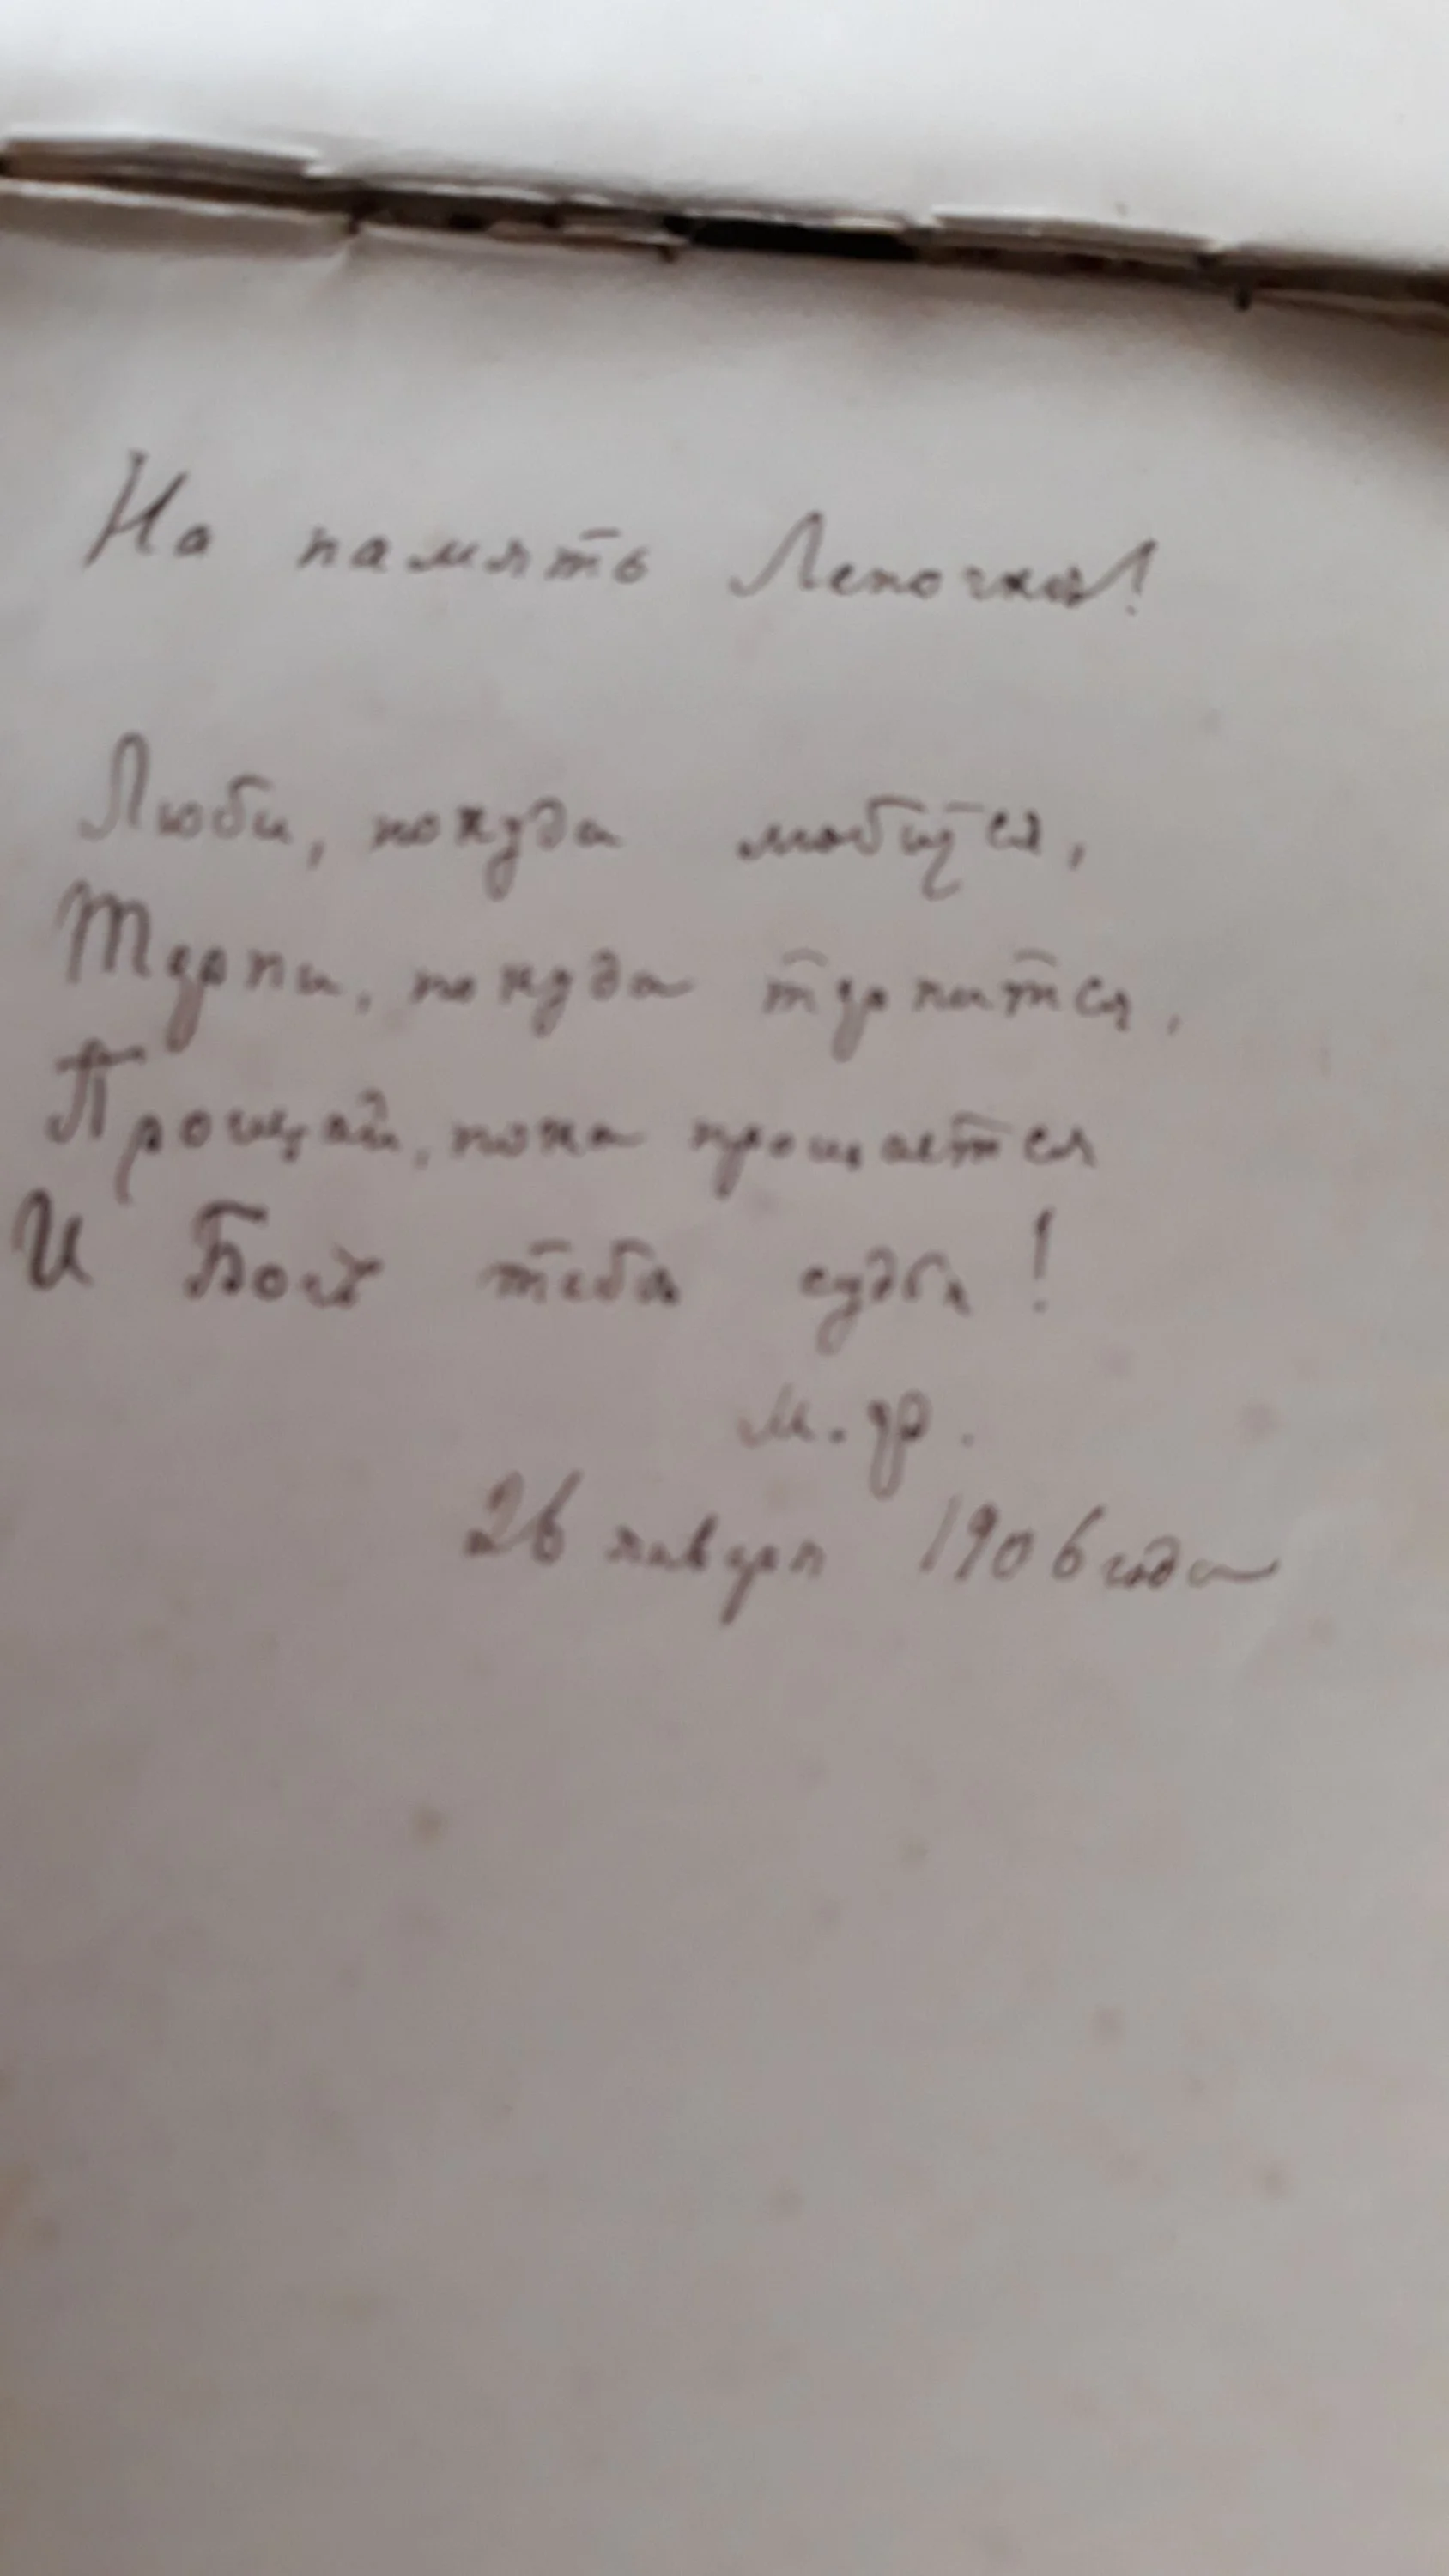 На память Леночка!
Люби, покуда любится,
Терпи, покуда терпится,
Прощай, пока прощается
И Бог тебя судья!
М. др.
26 января 1906 года